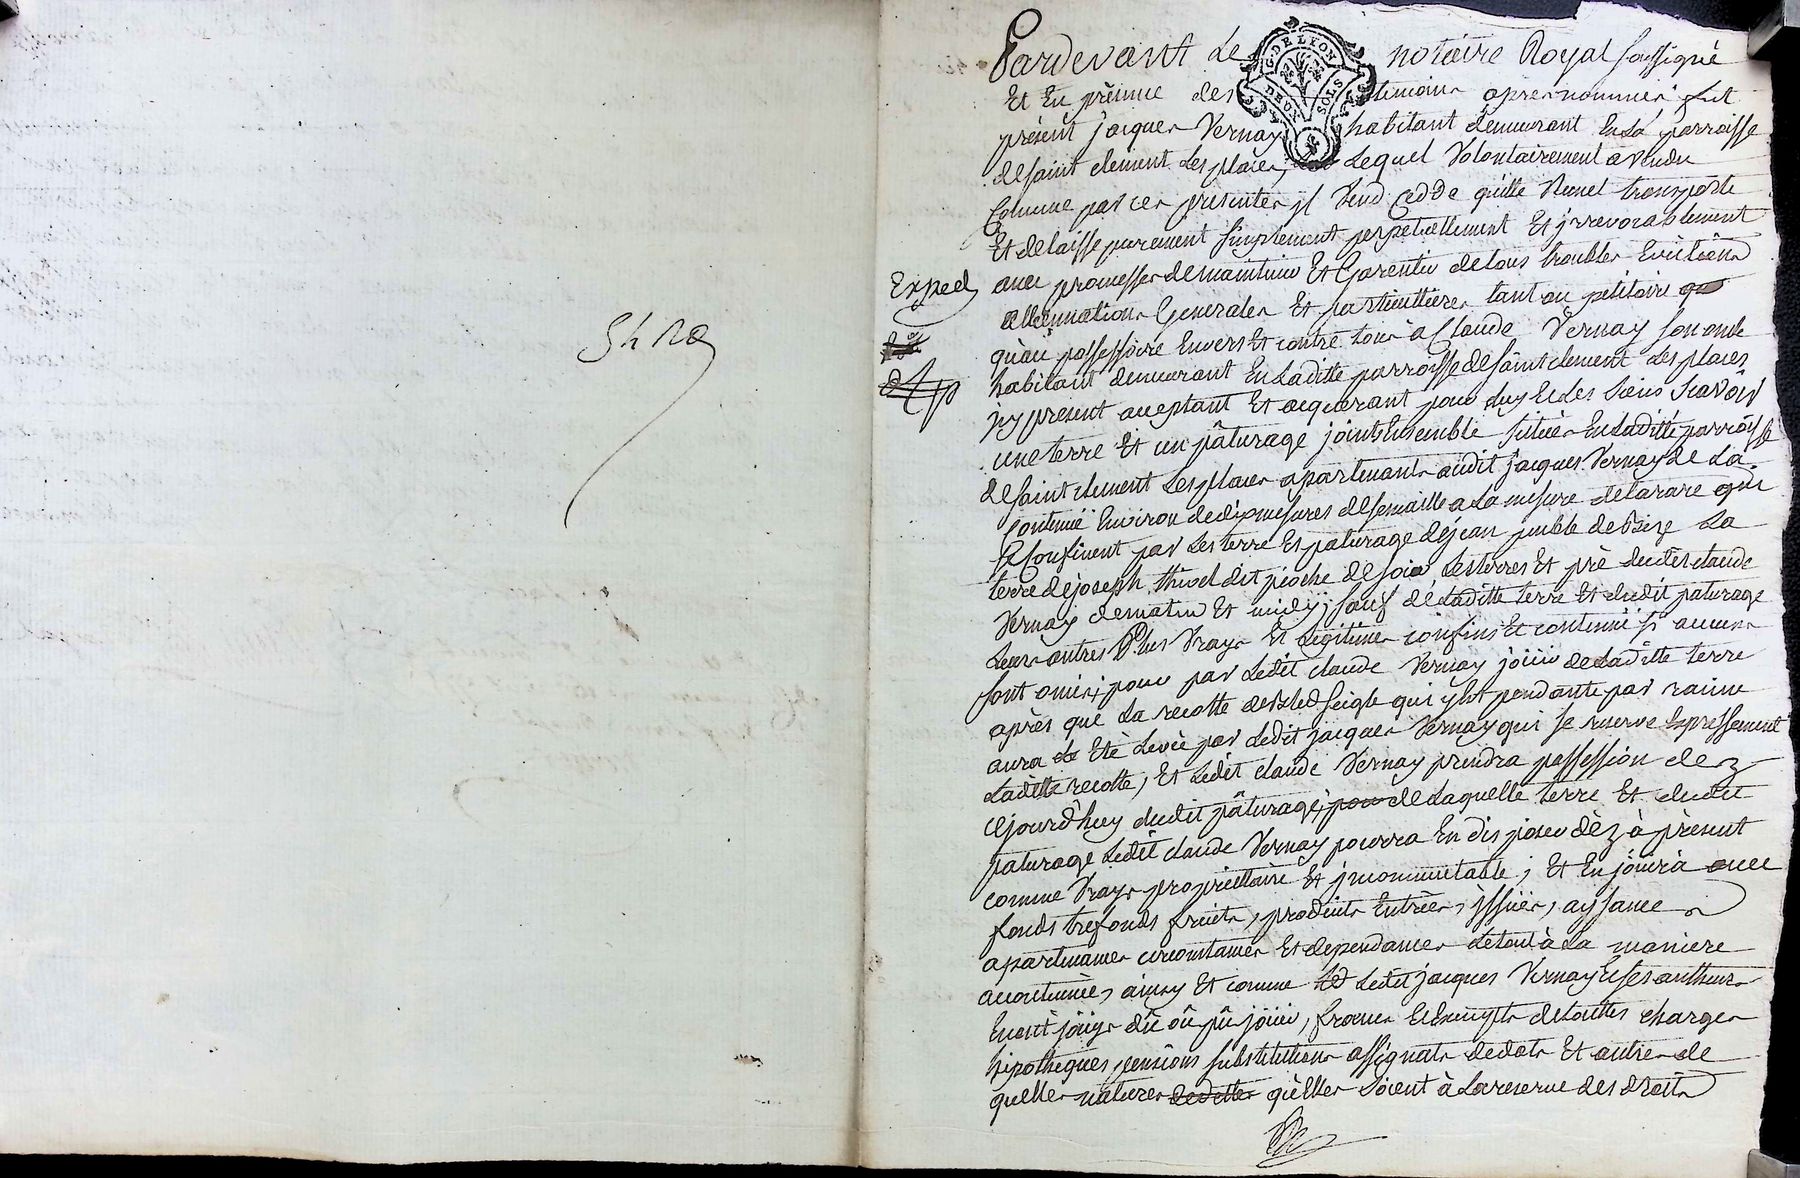 Pardevant Le notaire Royal soussigné
G. DE LYON
DEUX SOLS
Et En présence des temoins apres nommés fut
présent jacques Vernay habitant demeurant En La parroisse
de saint clement Les places, Lequel Volontairement a vendu
Comme par ces presentes jl Vend Cedde quitte Remet transporte
Et delaisse purement simplement perpetuellement Et jrrevocablement
avec promesses de maintenir Et Garentir de tous troubles Evictions
Generales Et particullieres tant au petitoire
qu'au possessoire Envers Et contre tous à Claude Vernay son oncle
habitant demeurant En Laditte parroisse de saint clement Les places
jcy present acceptant Et acquerant pour Luy Et les Siens Scavoir
une terre Et un pâturage joints Ensemble situés En Laditte parroisse
de saint clement Les places apartenants audit jacques Vernay de La
contenüe Environ de dix mesures de semaille a La mesure de tarare qui
se Confinent par Les terre Et paturage de jean de bize La
terre de joseph thivel dit pioche de soir Les terres Et pré dudit claude
Vernay de matin Et midy; sauf de Laditte terre Et dudit paturage
Leurs autres Plus Vrays Et Legitimes confins Et contenüe sy aucuns
sont omis; pour par Ledit claude Vernay joüir de Laditte terre
après que La recolte de bled seigle qui y est pendante par racine
aura Eté Levée par Ledit jacques Vernay qui se reserve Expressement
Laditte recolte, Et Ledit claude Vernay prendra possession dez
cejourd'huy dudit pâturage; pour de Laquelle terre Et dudit
paturage Ledit claude Vernay pourra En disposer dèz à présent
comme Vrays proprietaire Et jncommutable; Et En joüira avec
fonds trefonds fruits, produits Entrées, jssües, aysances
apartenances circonstances Et dependances Le tout à La maniere
accoutumée, ainsy Et comme Ledit jacques Vernay Et ses autheurs
En ont joüys dû où pû joüir, francs Et Exempts de touttes charges
hipotheques pensions substitutions assignats de dots Et autres de
quelles natures de dettes qu'Elles soient à La reserve des droits
Exped